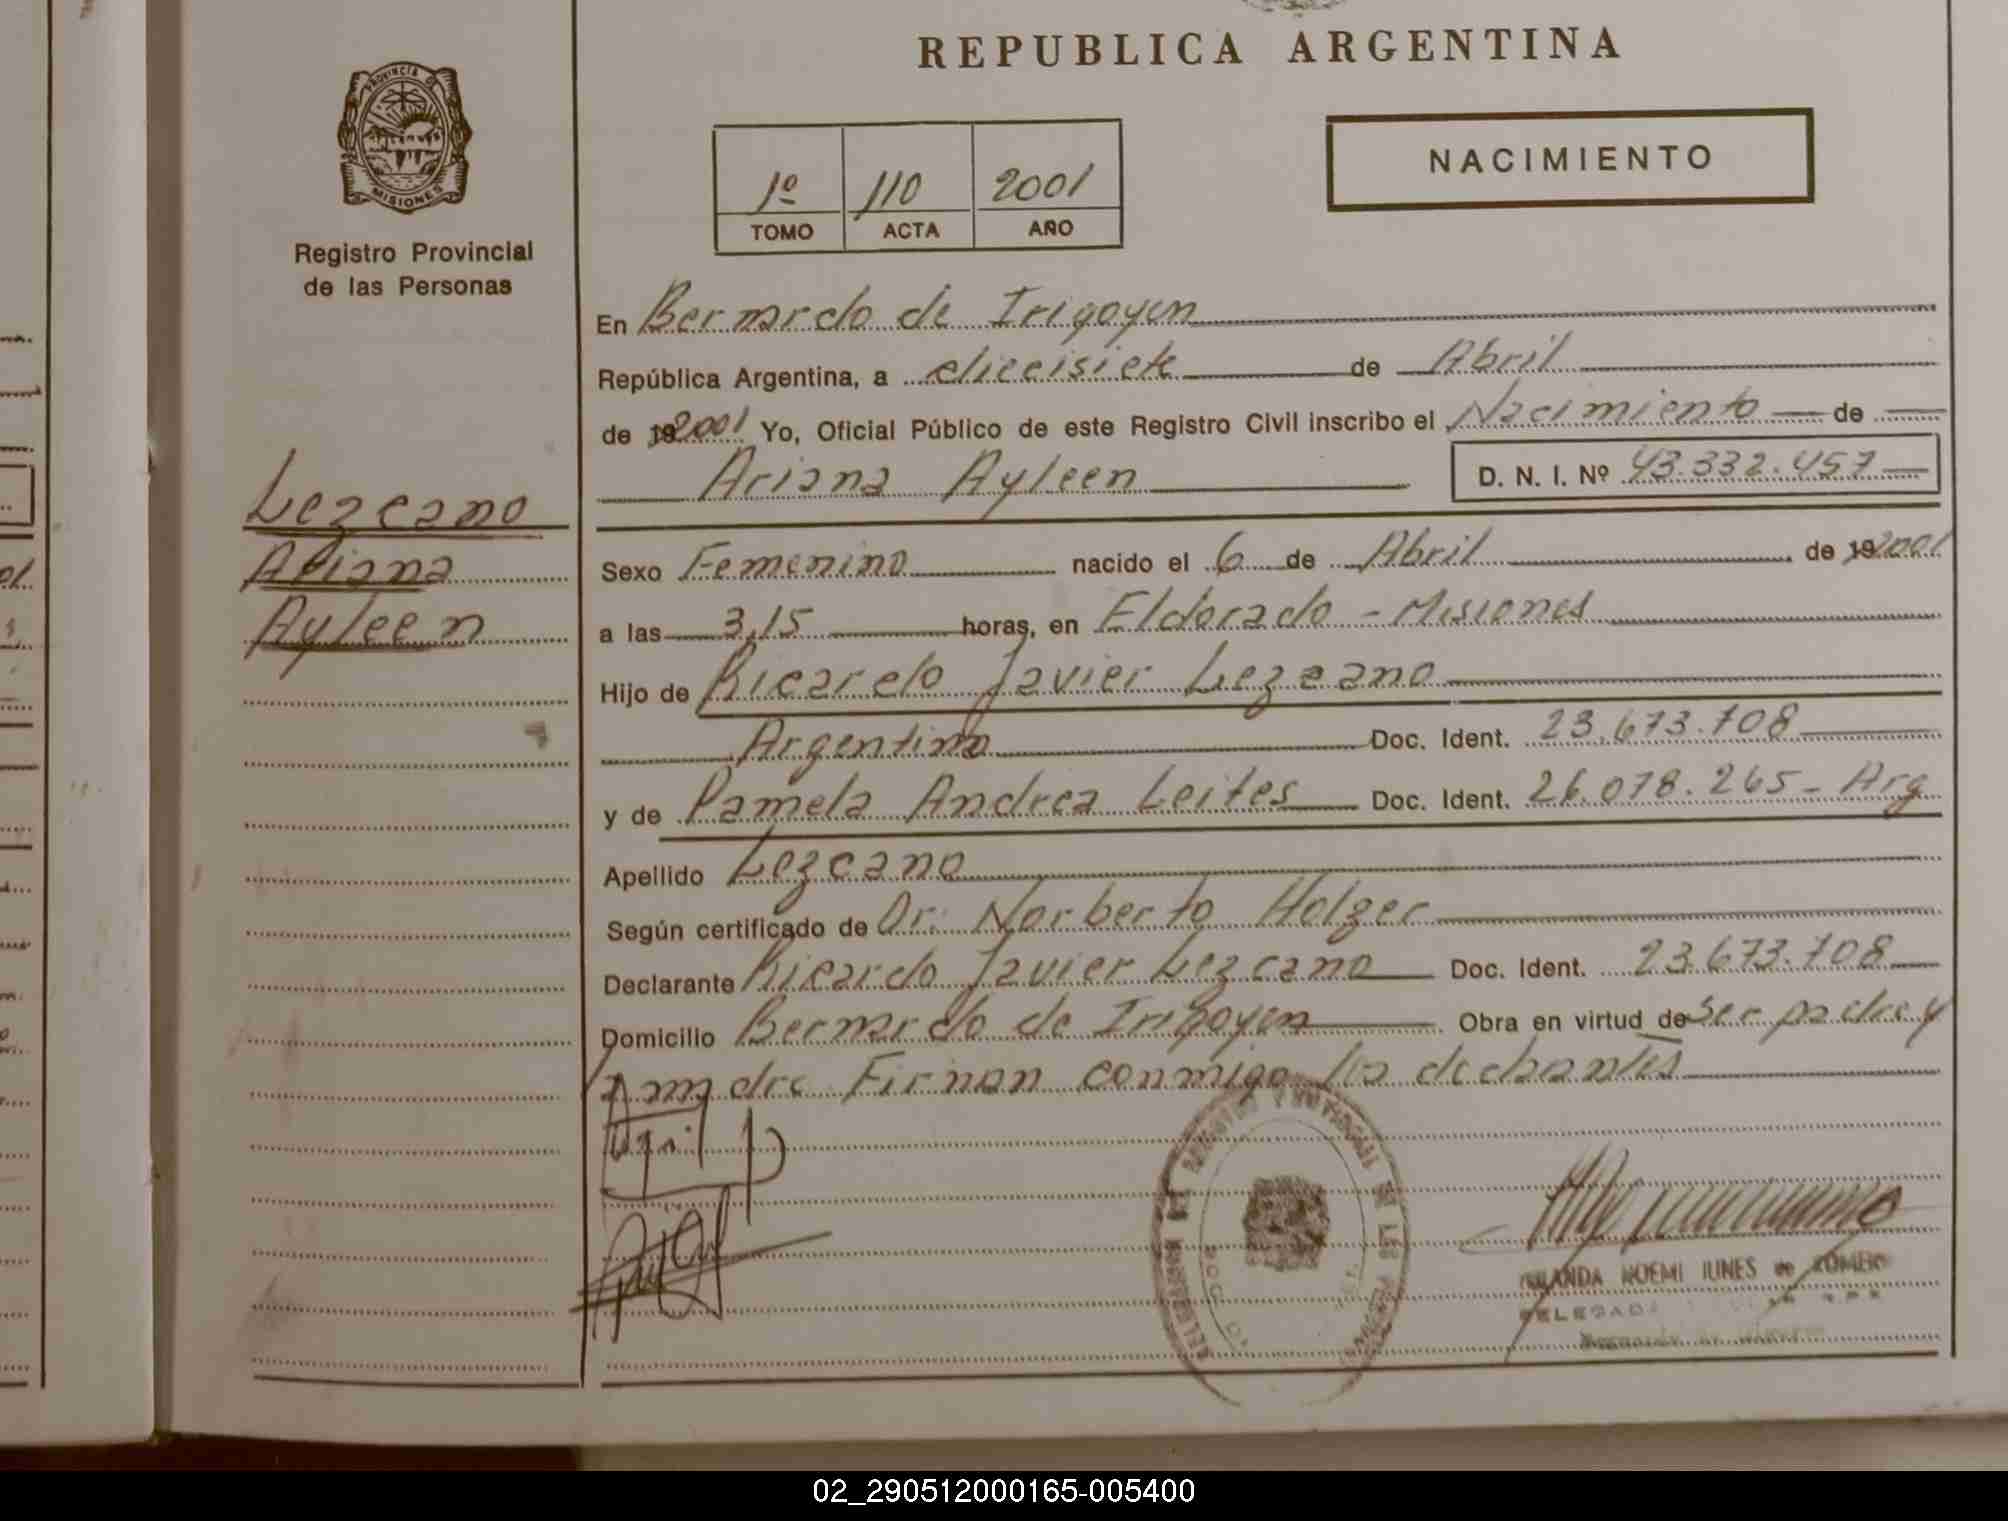 REPUBLICA ARGENTINA
PROVINCIA DE
MISIONES
Registro Provincial
de las Personas
1º 110 2001
TOMO ACTA AÑO
NACIMIENTO
En Bernardo de Irigoyen
República Argentina, a diecisiete de Abril
de 19 2001 Yo, Oficial Público de este Registro Civil inscribo el Nacimiento de
Ariana Ayleen D. N. I. Nº 43.332.457
Lezcano
Ariana
Ayleen
Sexo Femenino nacido el 6 de Abril de 19 2001
a las 3,15 horas, en Eldorado - Misiones
Hijo de Ricardo Javier Lezcano
Argentino Doc. Ident. 23.673.708
y de Pamela Andrea Leites Doc. Ident. 26.078.265 - Arg
Apellido Lezcano
Según certificado de Dr. Norberto Holzer
Declarante Ricardo Javier Lezcano Doc. Ident. 23.673.708
Domicilio Bernardo de Irigoyen Obra en virtud de ser padre y
madre Firman conmigo
NOEMI
02_290512000165-005400